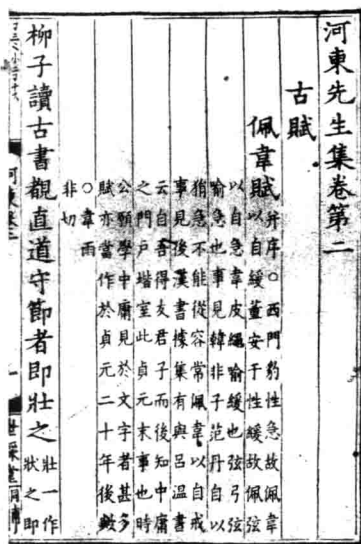 河東先生集卷第二
古賦
佩韋賦
并序○西門豹性急故佩韋
以自緩董安于性緩故佩弦
以自急韋皮繩喻緩也弦弓弦
喻急也事見韓非子范丹自以
狷急不能從容常佩韋以自戒
事見後漢書據集有與呂溫書
云自吾得友君子而後知中庸
之門戶堦室此貞元末事也時
公願學中庸見於文字者甚多
賦亦當作於貞元二十年後歟
○韋雨
非切
柳子讀古書觀直道守節者即壯之
壯一作
狀之即